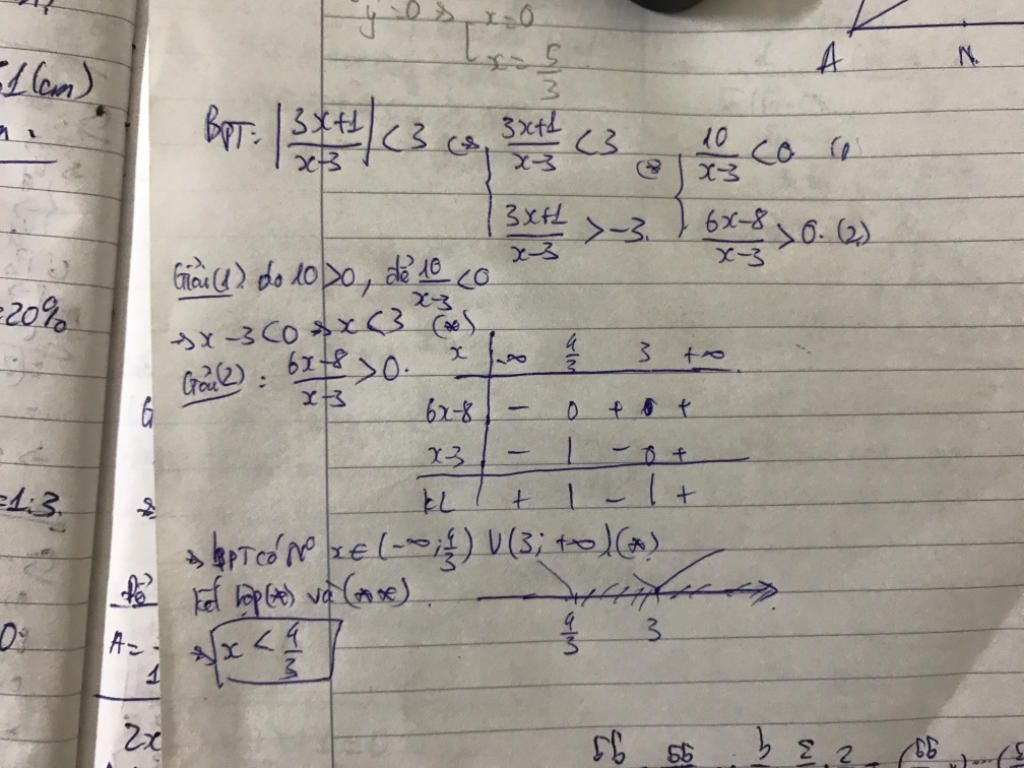 y'=0 ⇔ [x=0
x=5/3
A N
51(cm)
BPT: |3x+1/x-3| <3 ⇔ {3x+1/x-3 <3 ⇔ {10/x-3 <0 (1)
3x+1/x-3 >-3. 6x-8/x-3 >0. (2)
Giải(1) do 10>0, để 10/x-3 <0
=20%
⇒ x-3<0 ⇒ x<3 (*)
Giải(2): 6x-8/x-3 >0.
x | -∞ 4/3 3 +∞
6x-8 | - 0 + 0 +
x-3 | - | - 0 +
KL | + | - | +
=1:3.
⇒ BPT có N° x∈(-∞;4/3) ∪(3;+∞)(*)
Kết hợp(*) và (**).
4/3 3
⇒ x < 4/3
A=
1
2x